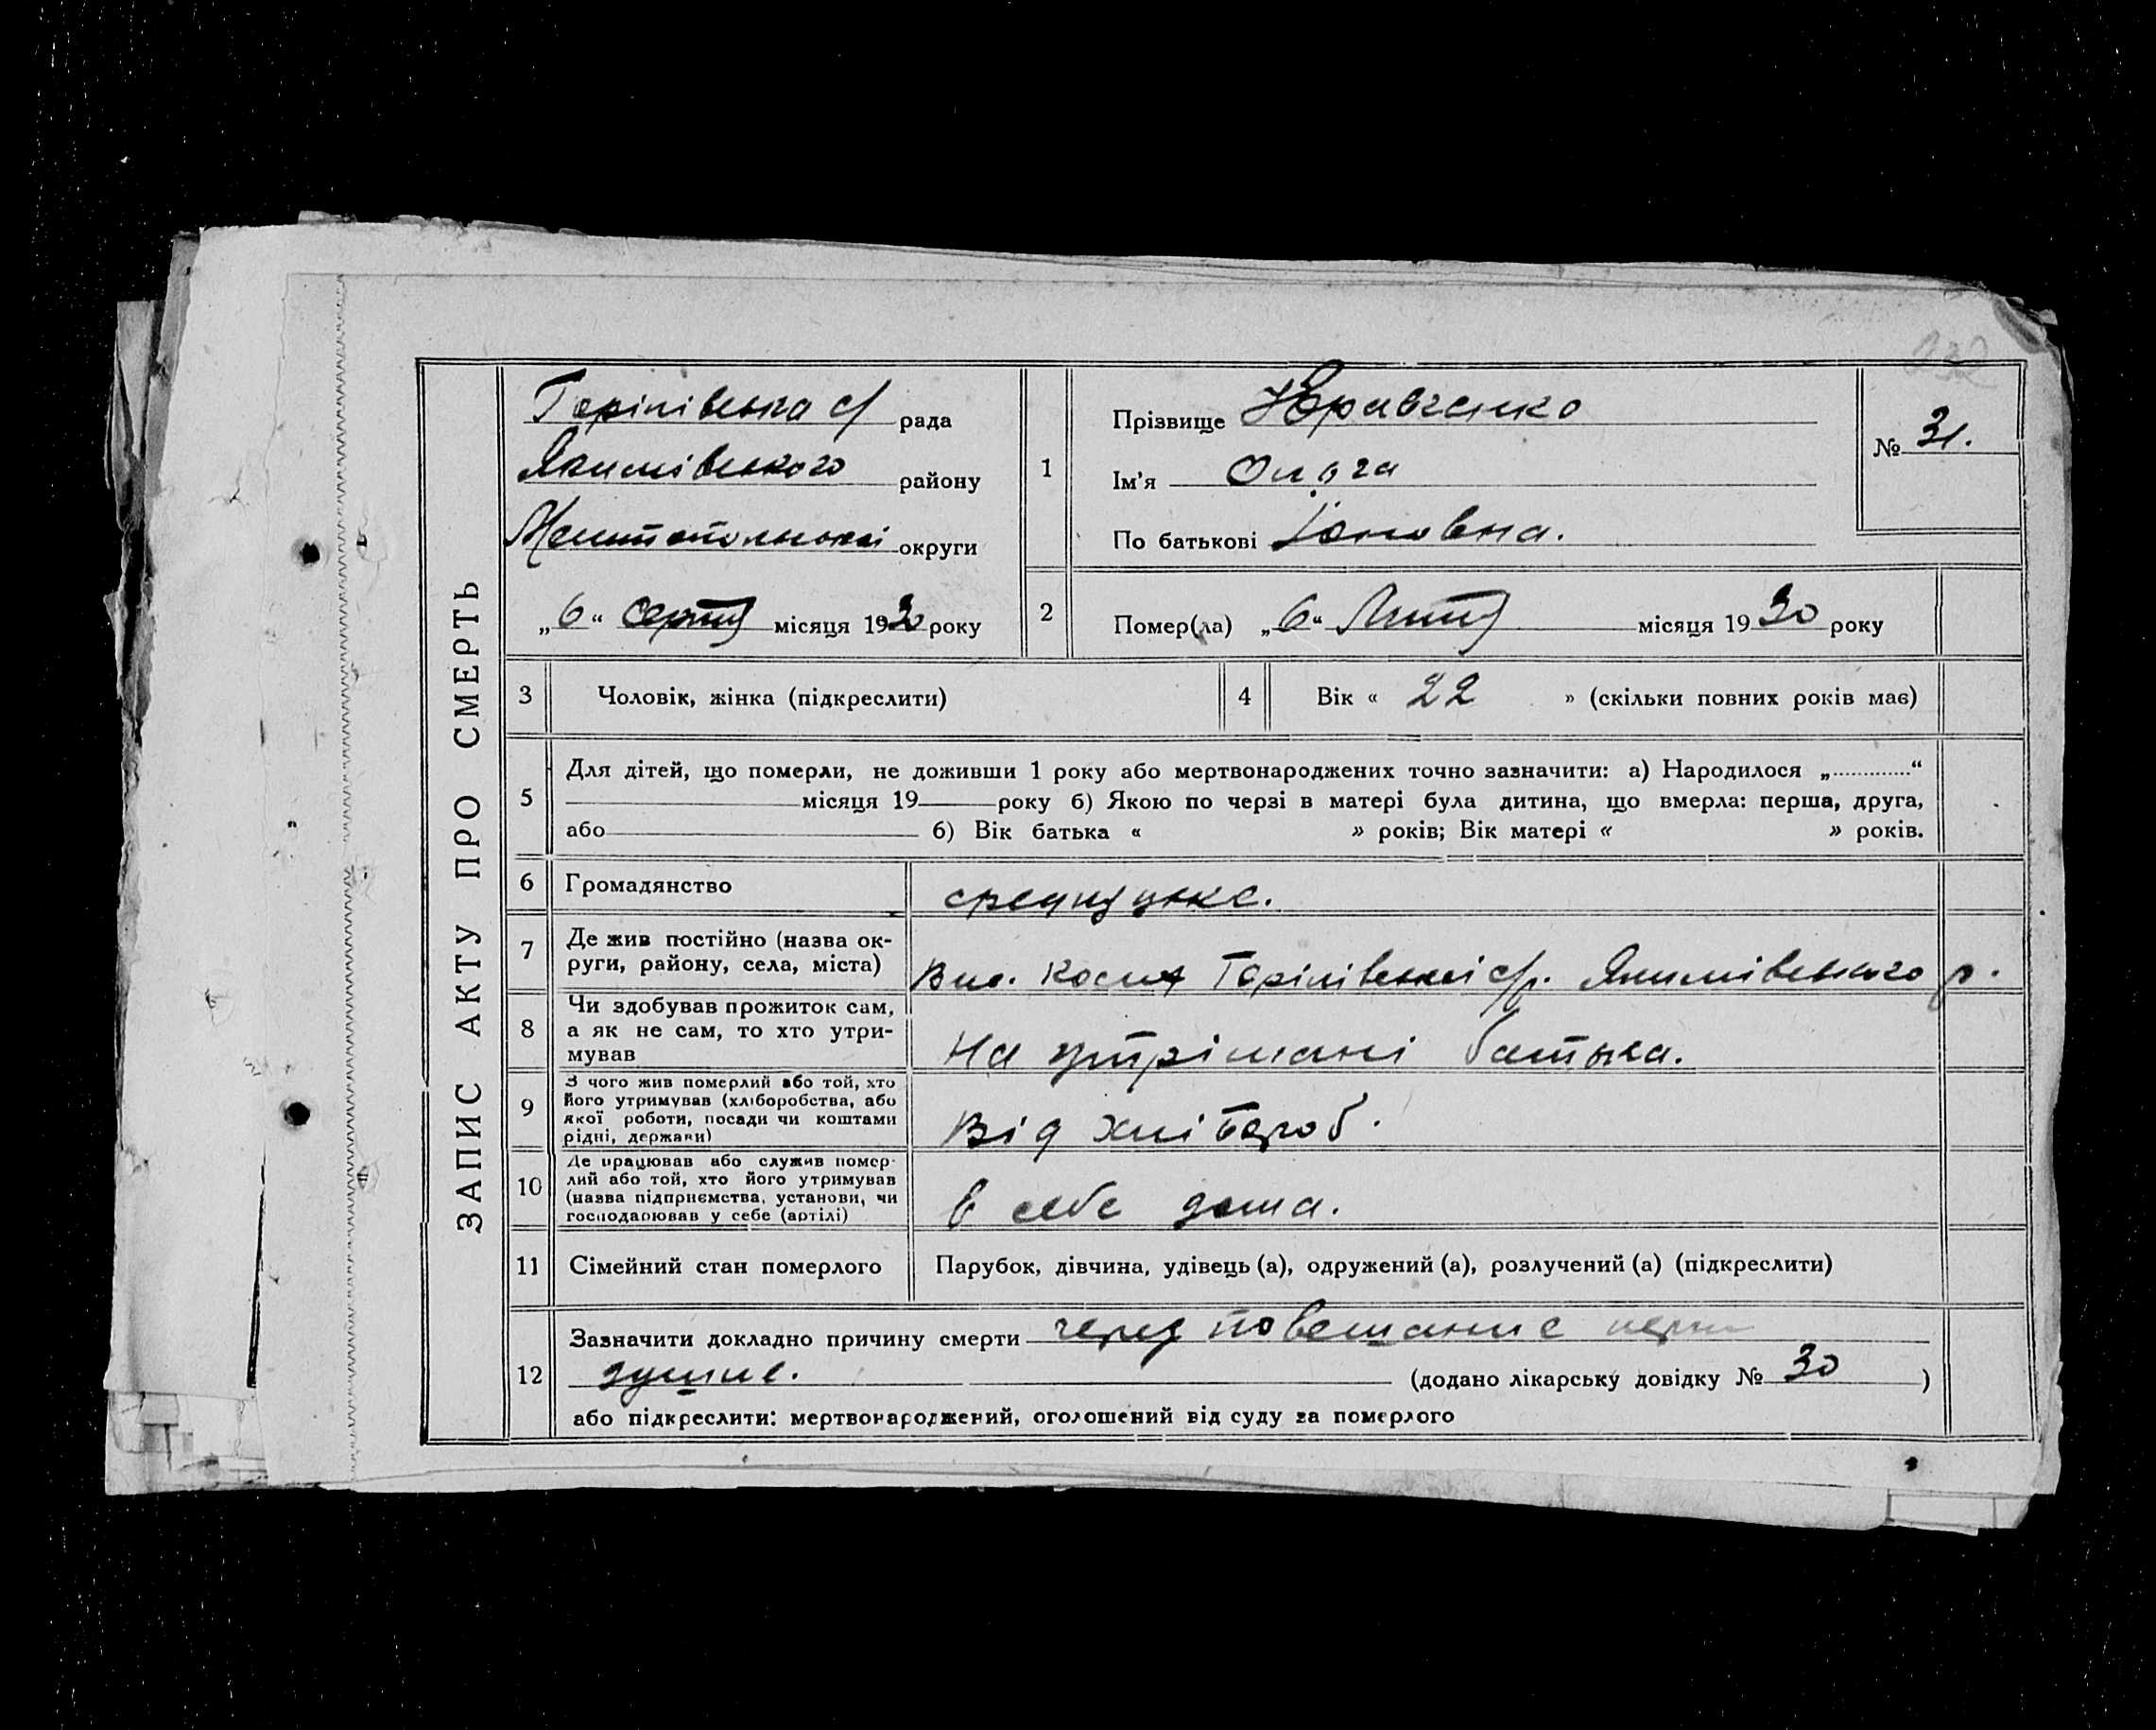 ЗАПИС АКТУ ПРО СМЕРТЬ
Горілівська с/ рада
Якимівського району
Мелітопольської округи
„6“ серпня місяця 1930 року
1
Прізвище Кравченко
Ім'я Ольга
По батькові Йоновна.
№ 31.
2
Помер(ла) „6“ Липня місяця 1930 року
3 Чоловік, жінка (підкреслити)
4 Вік « 22 » (скільки повних років має)
5
Для дітей, що померли, не доживши 1 року або мертвонароджених точно зазначити: а) Народилося „.............“
місяця 19 року б) Якою по черзі в матері була дитина, що вмерла: перша, друга,
або б) Вік батька « » років; Вік матері « » років.
6 Громадянство
7 Де жив постійно (назва ок-
руги, району, села, міста)
Вис. Горілівської с/р. Якимівського р.
8 Чи здобував прожиток сам,
а як не сам, то хто утри-
мував
На утрімані батька.
9 З чого жив померлий або той, хто
його утримував (хліборобства, або
якої роботи, посади чи коштами
рідні, держави)
Від хлібороб.
10 Де працював або служив помер-
лий або той, хто його утримував
(назва підприємства, установи, чи
господарював у себе (артілі)
в себе дома.
11 Сімейний стан померлого Парубок, дівчина, удівець (а), одружений (а), розлучений (а) (підкреслити)
12 Зазначити докладно причину смерти через повешание
(додано лікарську довідку № 30 )
або підкреслити: мертвонароджений, оголошений від суду за померлого